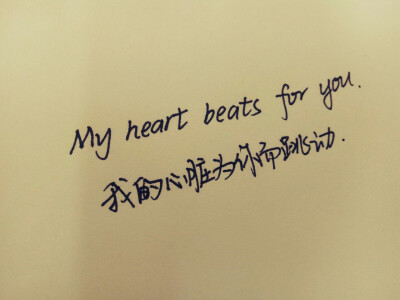 My heart beats for you.
我的心脏为你而跳动.